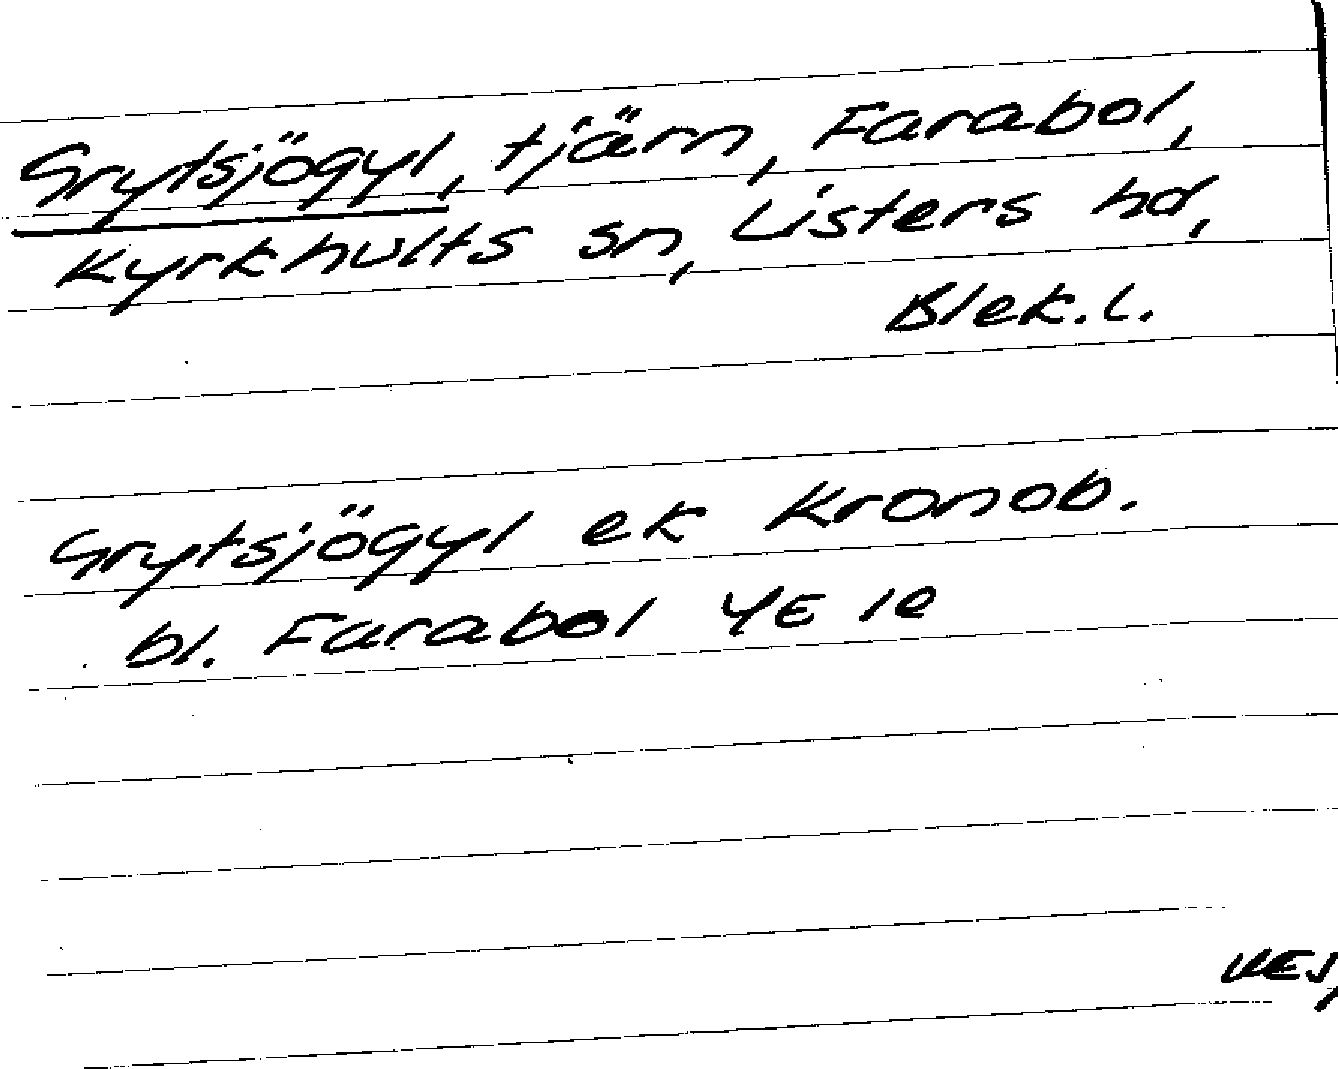 Grytsjögyl, tjärn, Farabol,
Kyrkhults sn, Listers hd,
Blek. l.
Grytsjögyl ek Kronob.
bl. Farabol 4E 1e